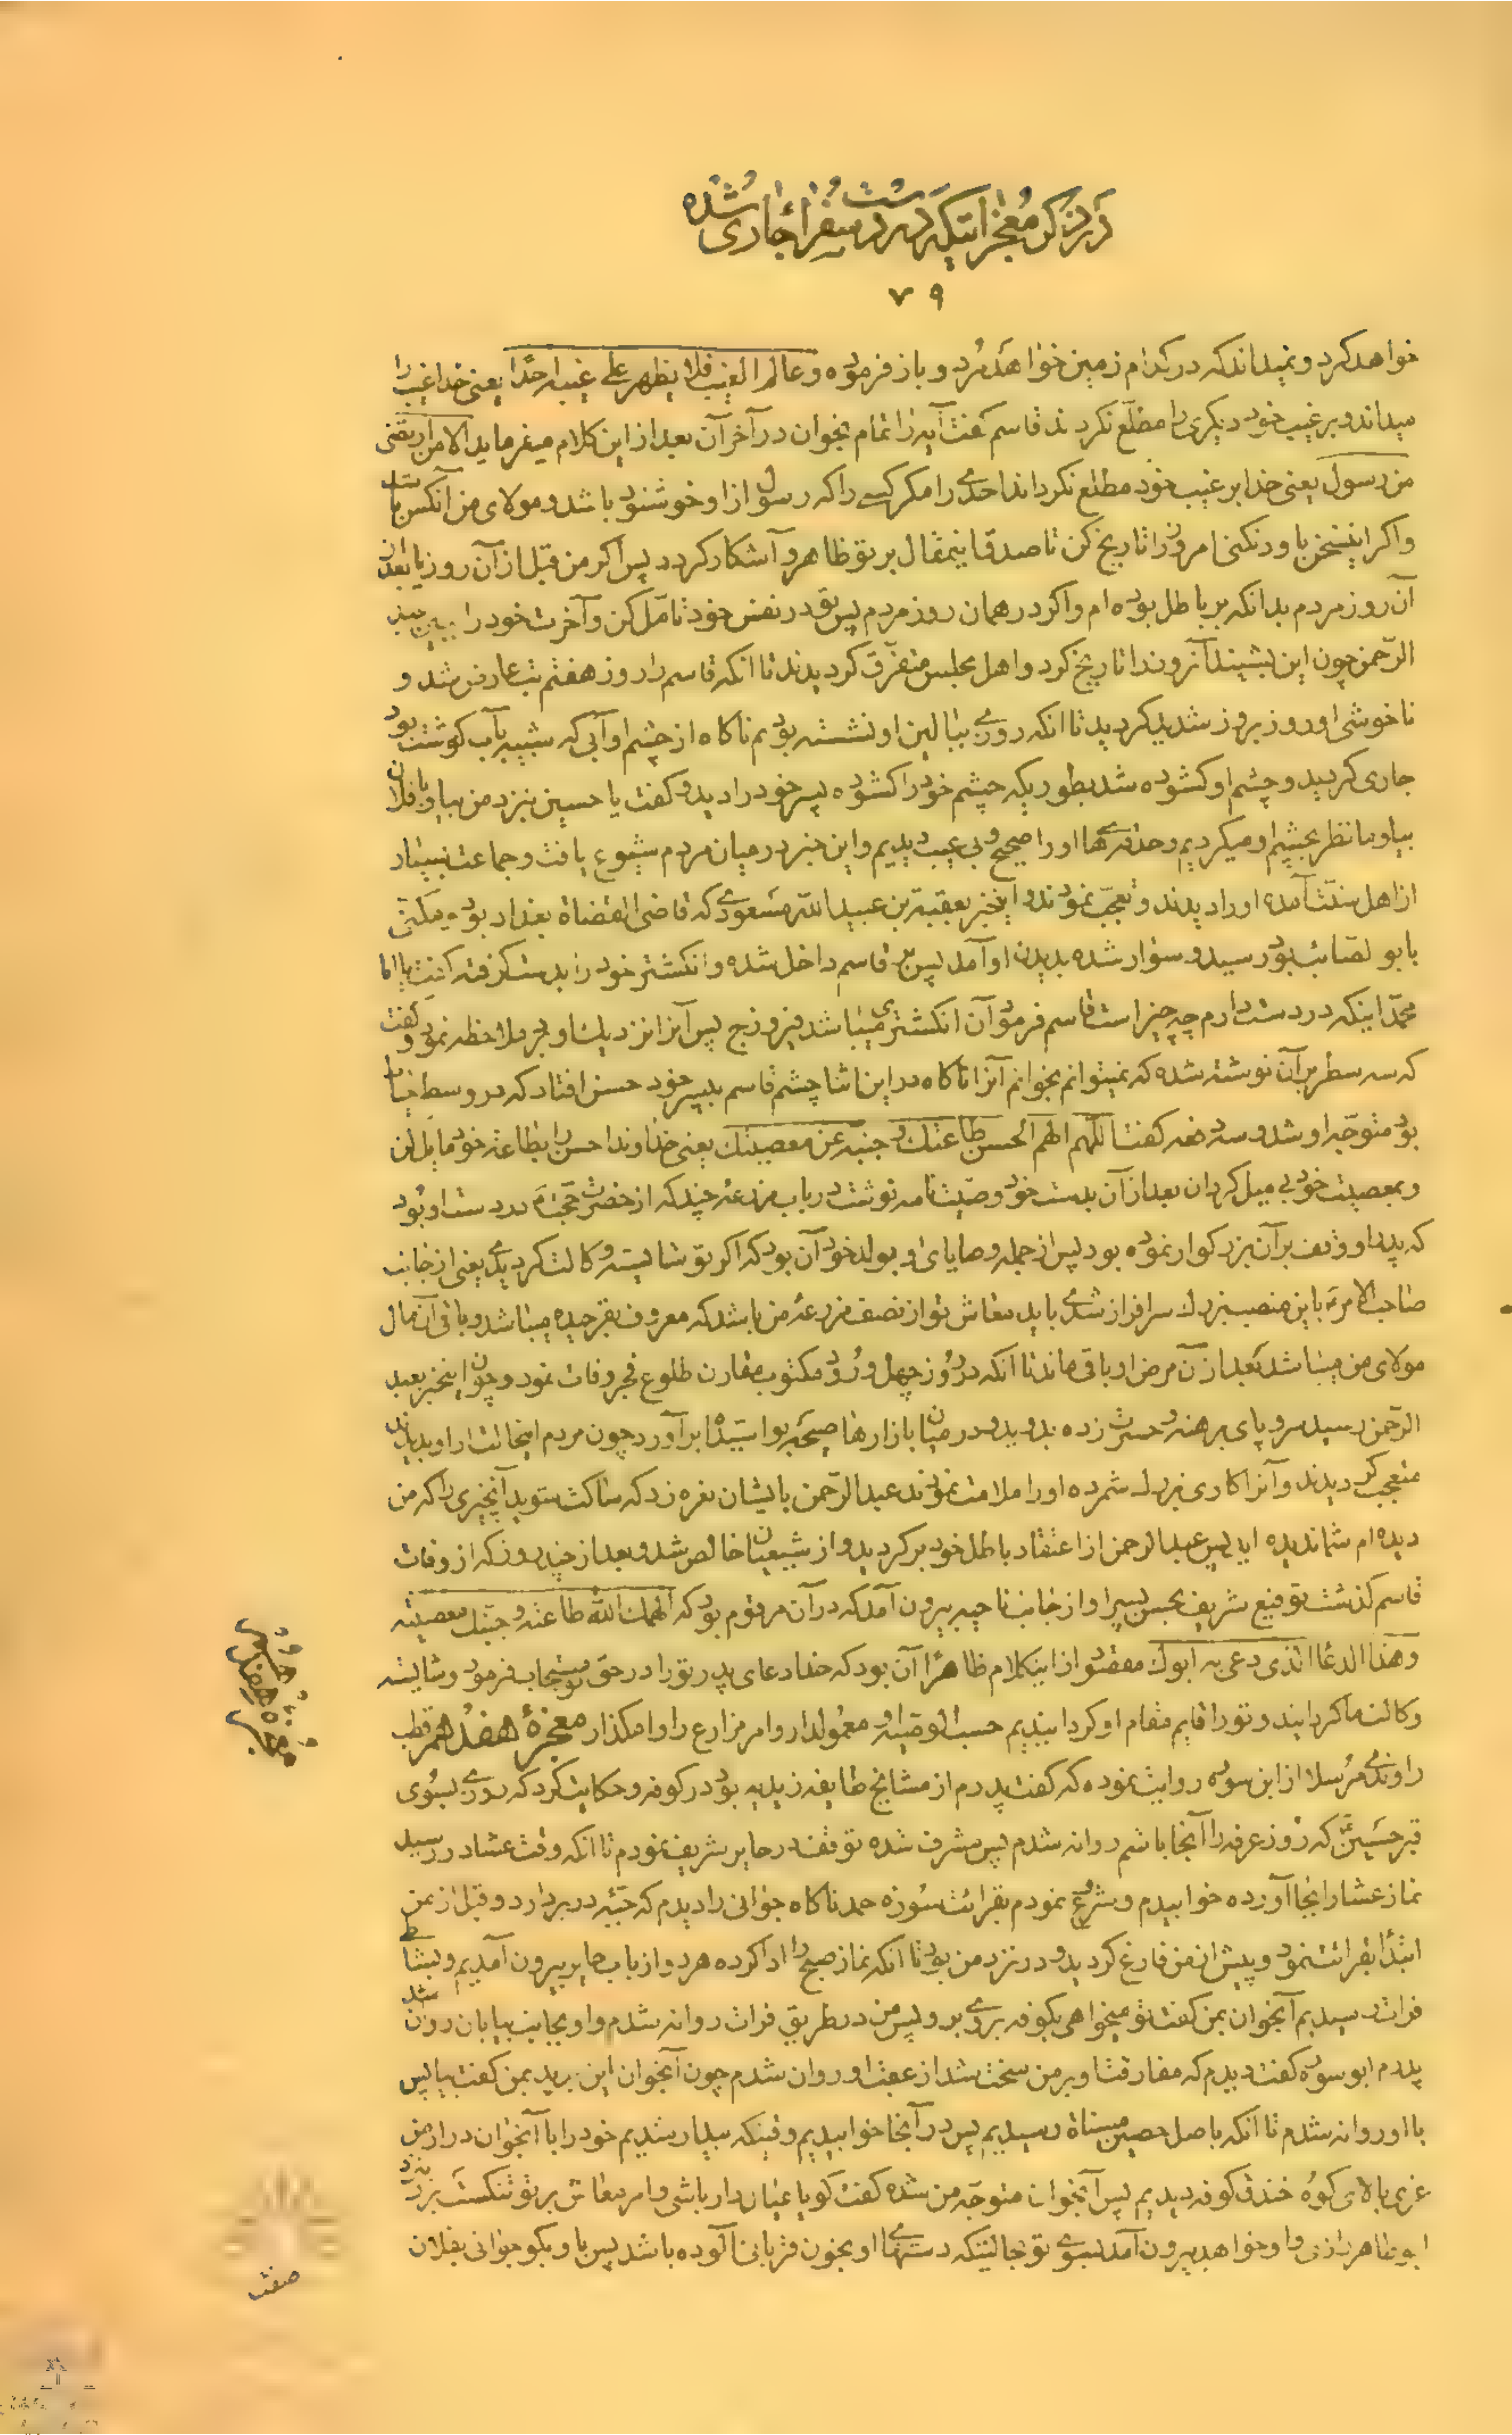 در ذکر معجزاتیکه در دست سفراء جاری شده
۷۹
خواهد کرد و نمیداند که در کدام زمین خواهد مُرد و باز فرموده و عالم الغیب فلا یظهر علی غیبه احدًا یعنی خدا غیب را
میداند و بر غیب خود دیگری را مطلع نکرد قاسم کفت آیه را تمام بخوان در آخر آن بعد از این کلام میفرماید الا من ارتضی
من رسول یعنی خدا بر غیب خود مطلع نکرداند احدی را مکر کسی را که رسول از او خوشنود باشد و مولای من آنکس
واکر اینسخن باور نکنی امروز را تاریخ کن تا صدق اینمقال بر تو ظاهر و آشکار کردد پس اکر من قبل از آن روز یا بعد از
آن روز مردم بدانکه بر باطل بوده ام واکر در همان روز مردم پس تو در نفس خود تامل کن و آخرت خود را ببین عبد
الرّحمن چون این بشنید آنروز را تاریخ کرد و اهل مجلس متفرّق کردیدند تا انکه قاسم را روز هفتم تب عارض شد و
ناخوشی او روز بروز شدید کردید تا انکه روزی ببالین او نشسته بودیم ناکاه از چشم او آبی که شبیه بآب کوشت بود
جاری کردید و چشم او کشوده شد بطوریکه چشم خود را کشوده پسر خود را دید و کفت یا حسین بنزد من بیا و یا فلان
بیا و ما نظر بچشم او میکردیم و حدقه ها او را صحیح و بی عیب دیدیم و این خبر در میان مردم شیوع یافت و جماعت بسیار
از اهل سنّت آمده او را دیدند و تعجّب نمودند و اینخبر بعقبة بن عبید الله مسعودی که قاضی القضاة بغداد بود و مکنی
بابو لصائب بود رسید و سوار شده بدیدن او آمد پس بر قاسم داخل شده و انکشتر خود را بدست کرفته کفت یا ابا
محمّد اینکه در دست دارم چه چیز است قاسم فرمود آن انکشتری میباشد فیروزج پس آنرا نزدیک او برد ملاحظه نمود و کفت
که سه سطر بر آن نوشته شده که نمیتوانم بخوانم آنرا ناکاه در این اثنا چشم قاسم بپسر خود حسن افتاد که در وسط
بود متوجّه او شد و سه دفعه کفت اللّهم الهم الحسن طاعتک و جنبه عن معصیتک یعنی خداوندا حسن را بطاعت خود مایل کن
و بمعصیت خود بی میل کردان بعد از آن بدست خود وصیّت نامه نوشت در باب مزرعه چند که از حضرت حجّت در دست او بود
که پدر او وقف بر آن بزرکوار نموده بود پس از جمله وصایای او بولد خود آن بود که اکر تو شایسته وکالت کردیدی یعنی از جانب
صاحب الامر باین منصب بزرک سرافراز شدی باید معاش تو از نصف مزرعه من باشد که معروف بفرجیده میباشد و باقی آن مال
مولای من میباشد بعد از آن مرض او باقی ماند تا آنکه در روز چهل ورود مکتوب مقارن طلوع فجر وفات نمود و چون اینخبر بعبد
الرّحمن رسید سر و پای برهنه و حسرت زده بدوید و در میان بازارها صیحه وا سیّدا برآورد چون مردم اینحالت را از او بدیدند
متعجب کردیدند و آنرا کاری بزرک شمرده او را ملامت نمودند عبد الرّحمن بایشان نعره زد که ساکت شوید آنچیزی را که من
دیده ام شما ندیده اید پس عبد الرحمن از اعتقاد باطل خود برکردید و از شیعیان خالص شد و بعد از چند روز که از وفات
قاسم کذشت توقیع شریف بحسن پسر او از جانب ناحیه بیرون آمد که در آن مرقوم بود که الهمک الله طاعته و جنّبک معصیته
وهذا الدعا الذی دعی به ابوک مقصود از اینکلام ظاهراً آن بود که خدا دعای پدر تو را در حق تو مستجاب فرمود و شایسته
وکالت ما کردانید و تو را قایم مقام او کردانیدیم حسب الوصیّة او معمولدار و امر مزارع را واکذار معجزهٔ هفدهم قطب
راوندی مُرسلا از ابن سوره روایت نموده که کفت پدرم از مشایخ طایفه زیدیه بود در کوفه و حکایت کرد که روزی بسوی
قبر حسین که روز عرفه را آنجا باشم روانه شدم پس مشرف شده توقف در حایر شریف نمودم تا انکه وقت عشا در رسید
نماز عشا را بجا آورده خوابیدم و شروع نمودم بقرائت سوره حمد ناکاه جوانی را دیدم که جبّه در بر دارد و قبل از من
ابتدا بقرائت نمود و پیش از من فارغ کردید و در نزد من بود تا انکه نماز صبح را ادا کرده هر دو از باب حایر بیرون آمدیم و بشط
فرات رسیدیم آنجوان بمن کفت تو میخواهی بکوفه بروی برو پس من در طریق فرات روانه شدم و او بجانب بیابان روان شد
پدرم ابو سوره کفت دیدم که مفارقت او بر من سخت شد از عقب او روان شدم چون آنجوان این بدید بمن کفت بیا پس
با او روانه شدم تا انکه باصل حصین مسناة رسیدیم پس در آنجا خوابیدیم وقتیکه بیدار شدیم خود را با آنجوان در ارض
غری بالای کوه خندق کوفه دیدیم پس آنجوان متوجّه من شده کفت کویا عیال دار باشی و امر معاش بر تو تنکست برو بنزد
ابو طاهر رازی و او خواهد بیرون آمد بسوی تو بحالتیکه دستهای او بخون قربانی آلوده باشد پس باو بکو جوانی بفلان
معجزه هفدهم
صفت